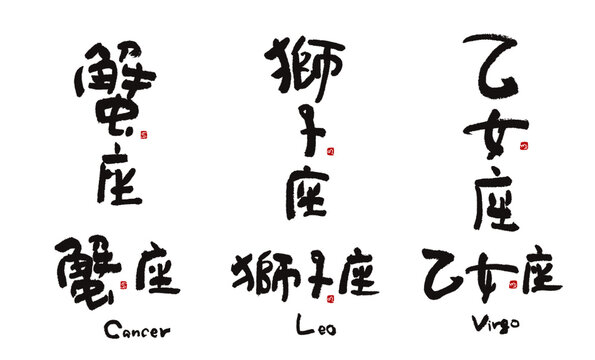 蟹座
獅子座
乙女座
蟹座
獅子座
乙女座
Cancer
Leo
Virgo